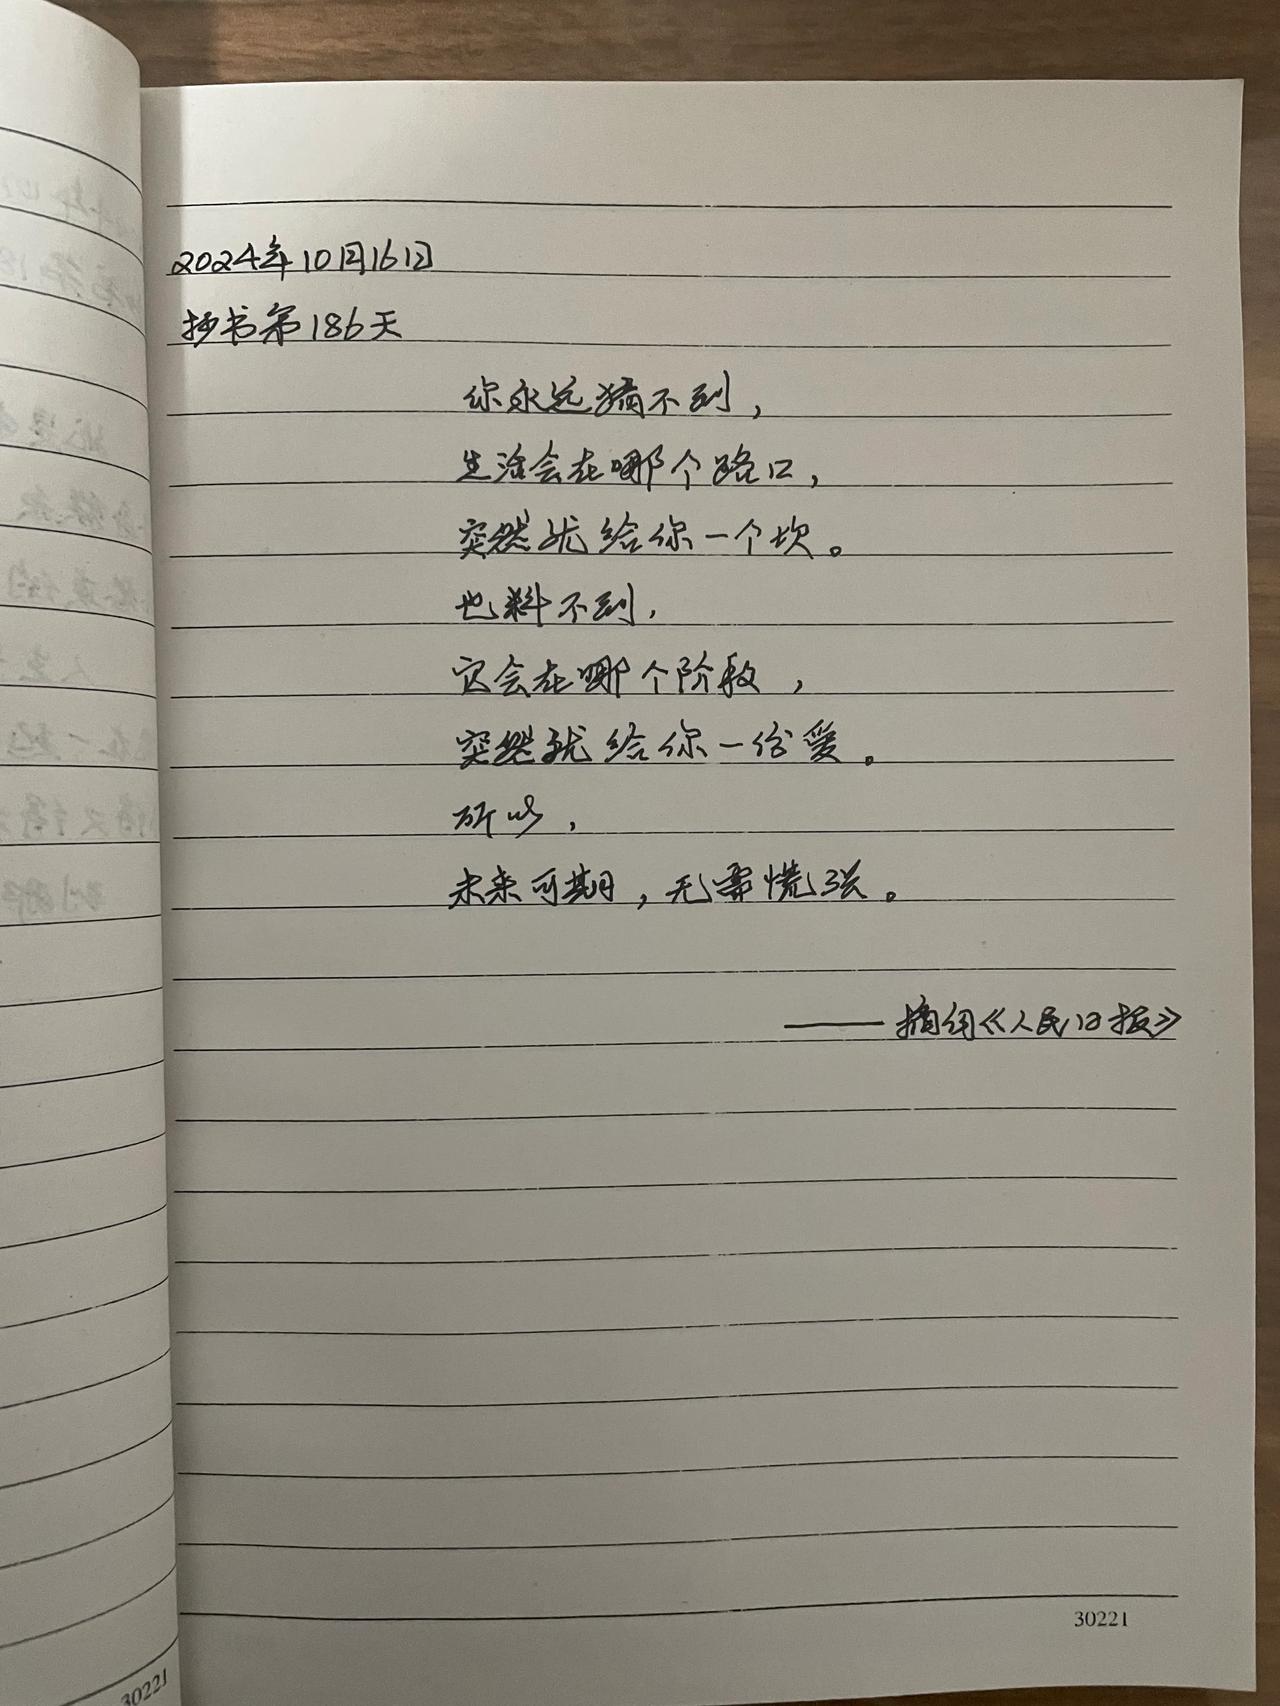 2024年10月16日
抄书第186天
你永远猜不到，
生活会在哪个路口，
突然就给你一个坎。
也料不到，
它会在哪个阶段，
突然就给你一份爱。
所以，
未来可期，无需慌张。
——摘自《人民日报》
30221
30221